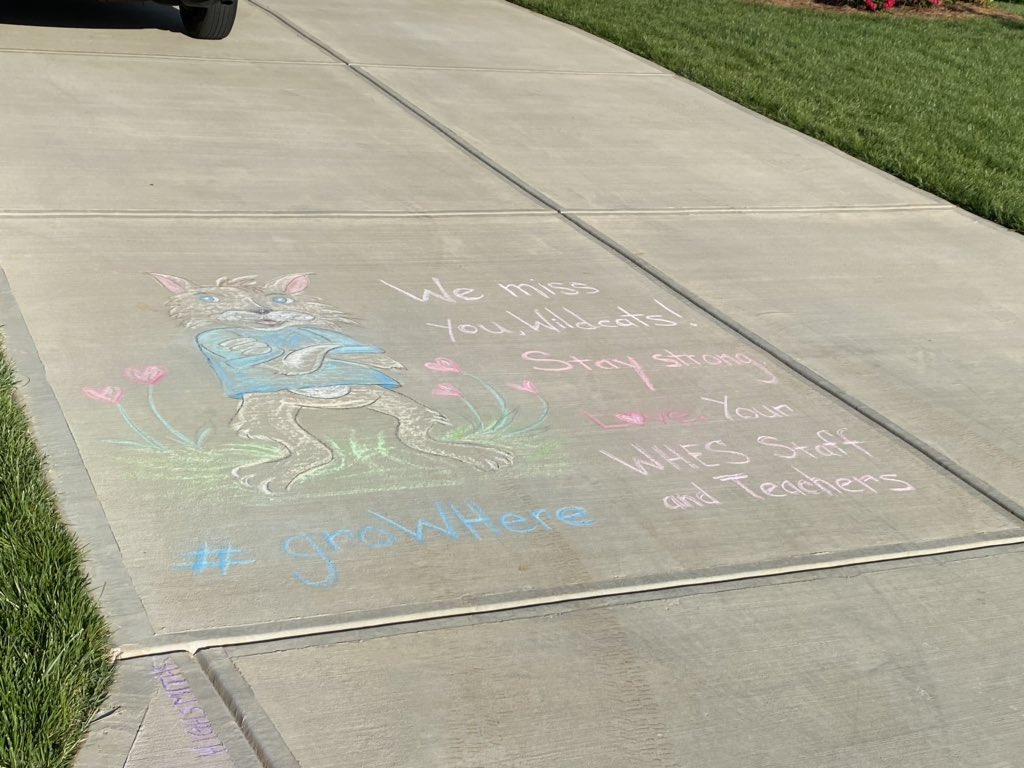 We miss
You, Wildcats!
Stay strong
Love, Your
WHES Staff
and Teachers
#groWHere